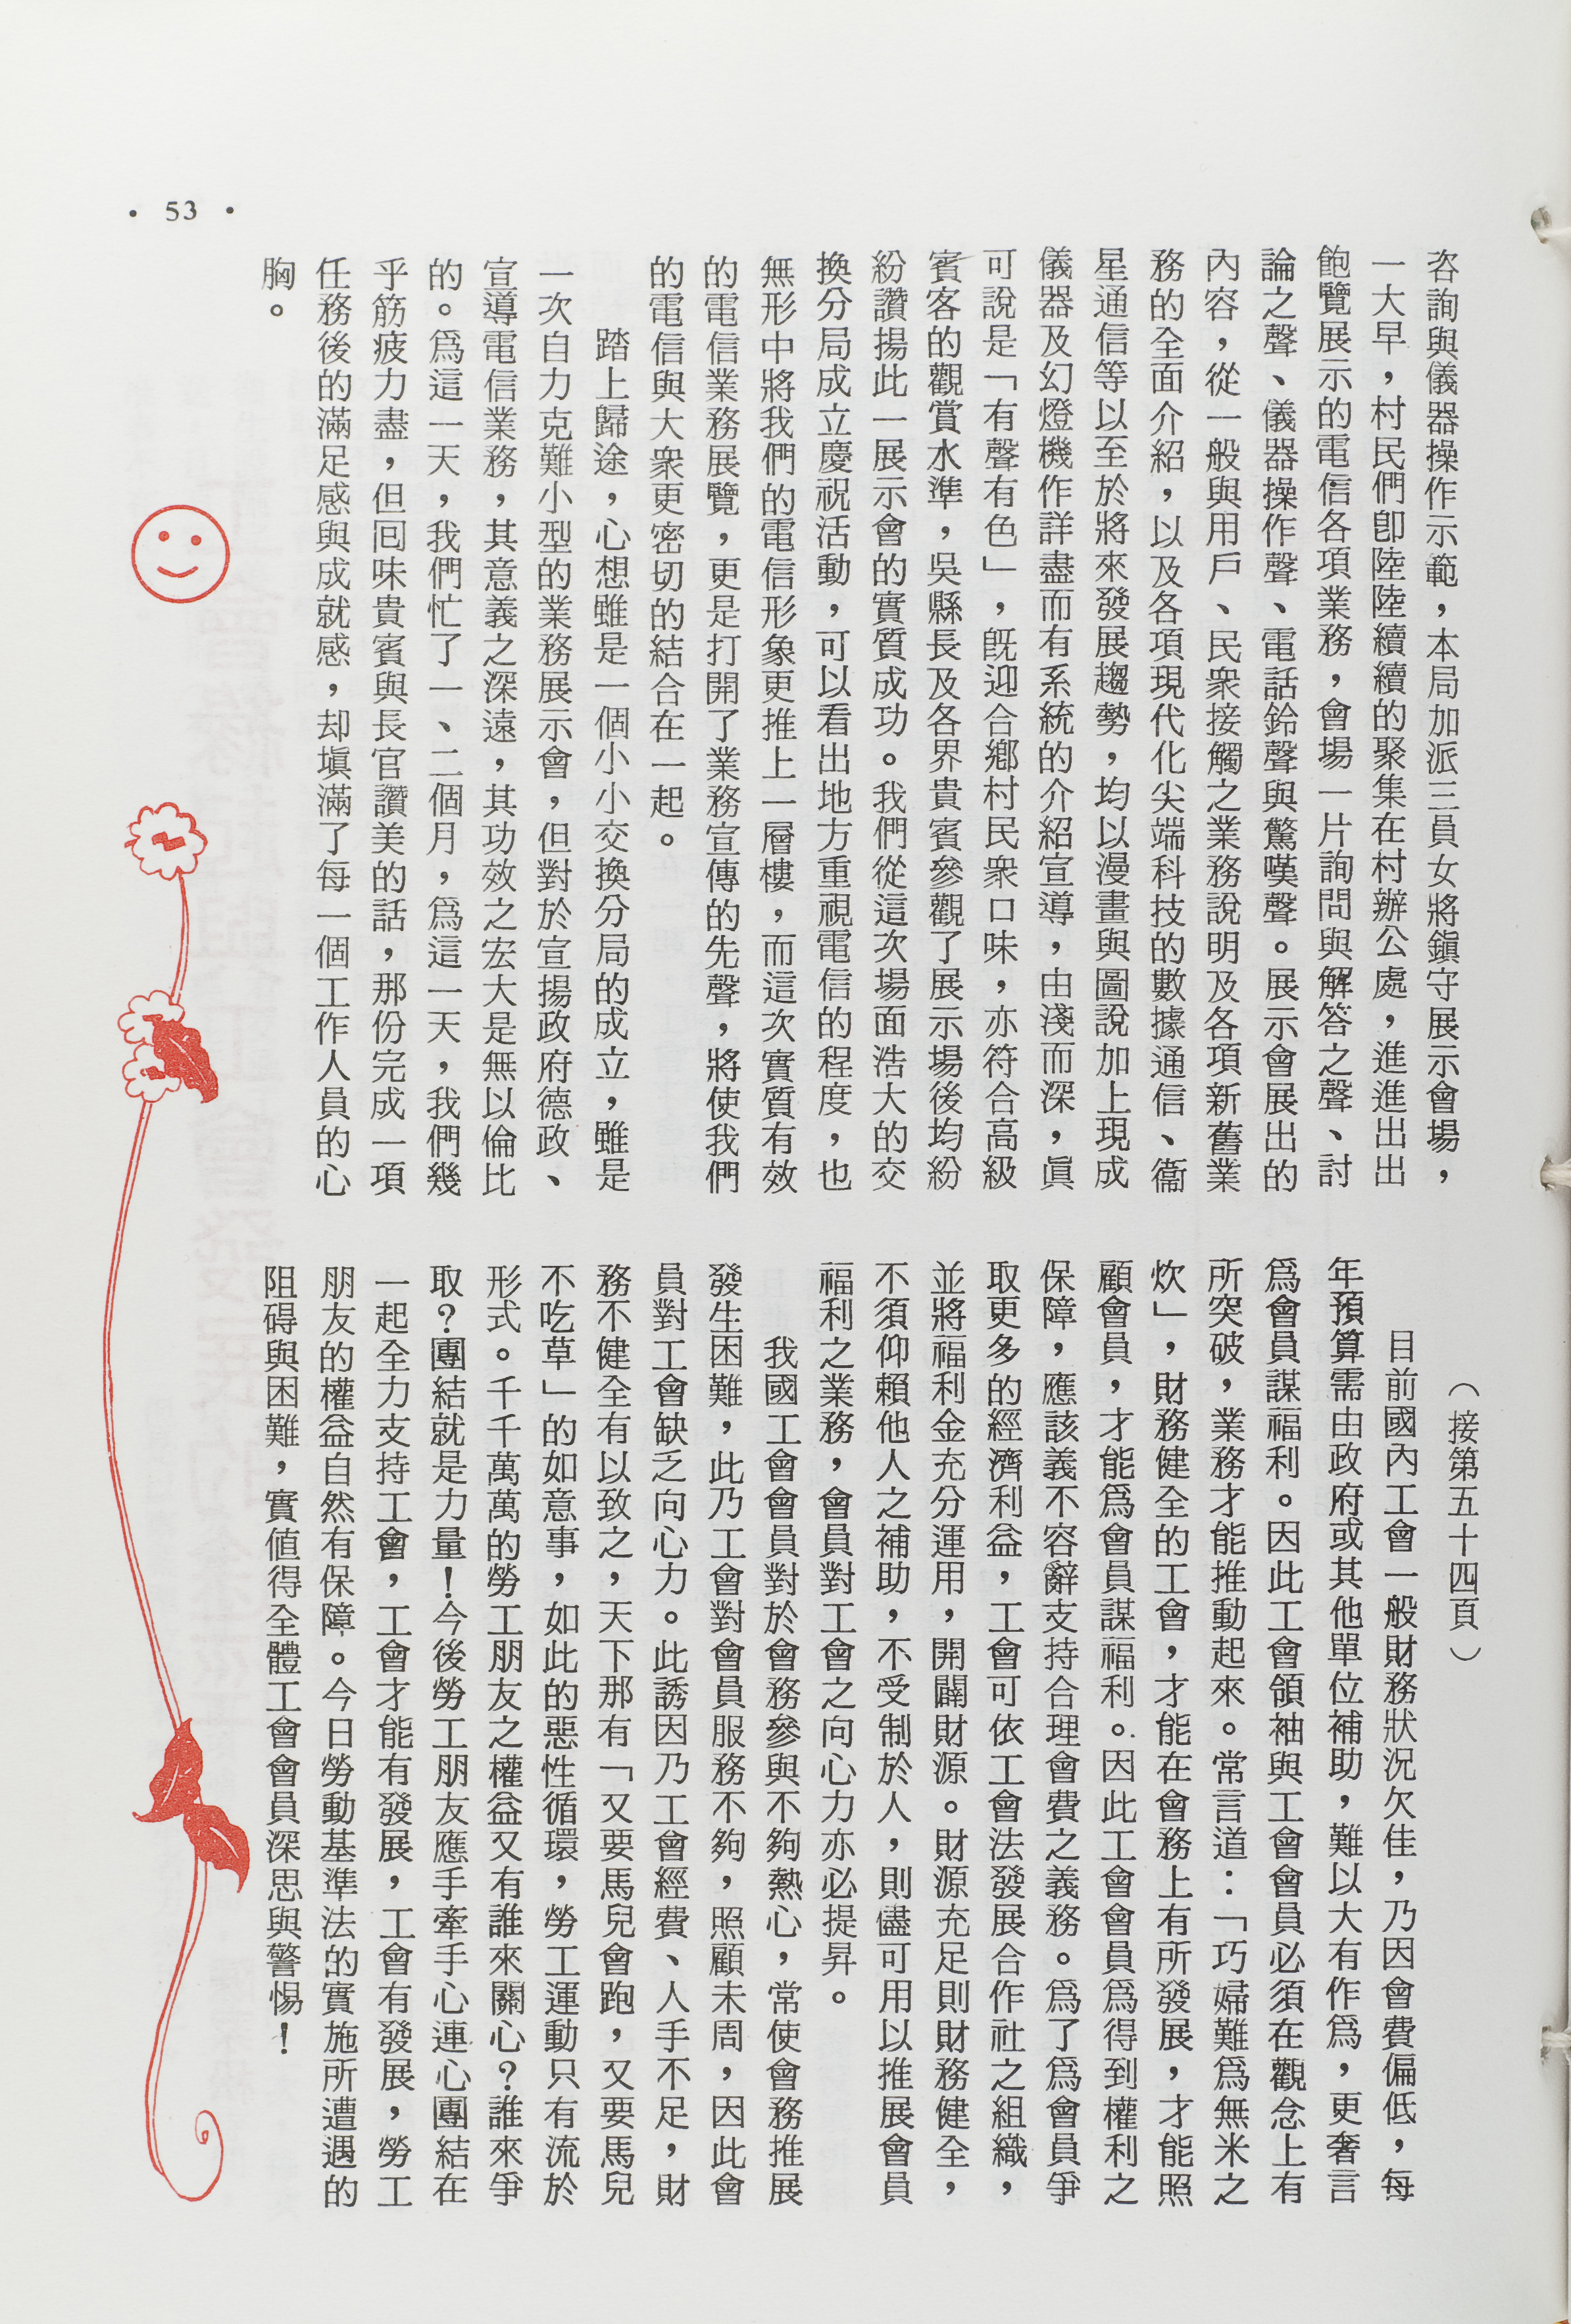 咨詢與儀器操作示範，本局加派三員女將鎮守展示會場，
一大早，村民們卽陸陸續續的聚集在村辦公處，進進出出
飽覽展示的電信各項業務，會場一片詢問與解答之聲、討
論之聲、儀器操作聲、電話鈴聲與驚嘆聲。展示會展出的
內容，從一般與用戶、民衆接觸之業務說明及各項新舊業
務的全面介紹，以及各項現代化尖端科技的數據通信、衞
星通信等以至於將來發展趨勢，均以漫畫與圖說加上現成
儀器及幻燈機作詳盡而有系統的介紹宣導，由淺而深，眞
可說是「有聲有色」，旣迎合鄉村民衆口味，亦符合高級
賓客的觀賞水準，吳縣長及各界貴賓參觀了展示場後均紛
紛讚揚此一展示會的實質成功。我們從這次場面浩大的交
換分局成立慶祝活動，可以看出地方重視電信的程度，也
無形中將我們的電信形象更推上一層樓，而這次實質有效
的電信業務展覽，更是打開了業務宣傳的先聲，將使我們
的電信與大衆更密切的結合在一起。
踏上歸途，心想雖是一個小小交換分局的成立，雖是
一次自力克難小型的業務展示會，但對於宣揚政府德政、
宣導電信業務，其意義之深遠，其功效之宏大是無以倫比
的。爲這一天，我們忙了一、二個月，爲這一天，我們幾
乎筋疲力盡，但囘味貴賓與長官讚美的話，那份完成一項
任務後的滿足感與成就感，却塡滿了每一個工作人員的心
胸。
（接第五十四頁）
目前國內工會一般財務狀況欠佳，乃因會費偏低，每
年預算需由政府或其他單位補助，難以大有作爲，更奢言
爲會員謀福利。因此工會領袖與工會會員必須在觀念上有
所突破，業務才能推動起來。常言道：「巧婦難爲無米之
炊」，財務健全的工會，才能在會務上有所發展，才能照
顧會員，才能爲會員謀福利。因此工會會員爲得到權利之
保障，應該義不容辭支持合理會費之義務。爲了爲會員爭
取更多的經濟利益，工會可依工會法發展合作社之組織，
並將福利金充分運用，開闢財源。財源充足則財務健全，
不須仰賴他人之補助，不受制於人，則儘可用以推展會員
福利之業務，會員對工會之向心力亦必提昇。
我國工會會員對於會務參與不夠熱心，常使會務推展
發生困難，此乃工會對會員服務不夠，照顧未周，因此會
員對工會缺乏向心力。此誘因乃工會經費、人手不足，財
務不健全有以致之，天下那有「又要馬兒會跑，又要馬兒
不吃草」的如意事，如此的惡性循環，勞工運動只有流於
形式。千千萬萬的勞工朋友之權益又有誰來關心？誰來爭
取？團結就是力量！今後勞工朋友應手牽手心連心團結在
一起全力支持工會，工會才能有發展，工會有發展，勞工
朋友的權益自然有保障。今日勞動基準法的實施所遭遇的
阻碍與困難，實値得全體工會會員深思與警惕！
• 53 •